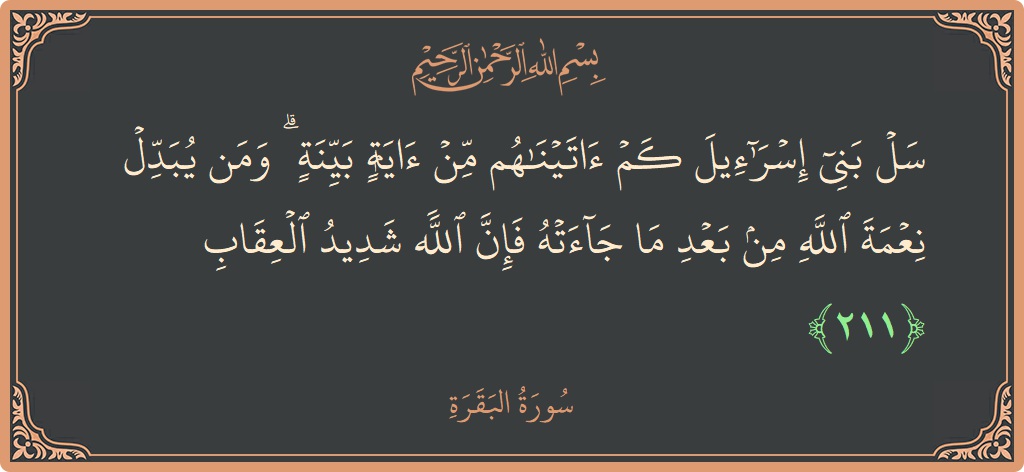 بِسْمِ اللَّهِ الرَّحْمَٰنِ الرَّحِيمِ
سَلۡ بَنِىٓ إِسۡرَٰٓءِيلَ كَمۡ ءَاتَيۡنَـٰهُم مِّنۡ ءَايَةِۭ بَيِّنَةٍۗ وَمَن يُبَدِّلۡ
نِعۡمَةَ ٱللَّهِ مِنۢ بَعۡدِ مَا جَآءَتۡهُ فَإِنَّ ٱللَّهَ شَدِيدُ ٱلۡعِقَابِ
﴿٢١١﴾
سُورَةُ البَقَرَةِ